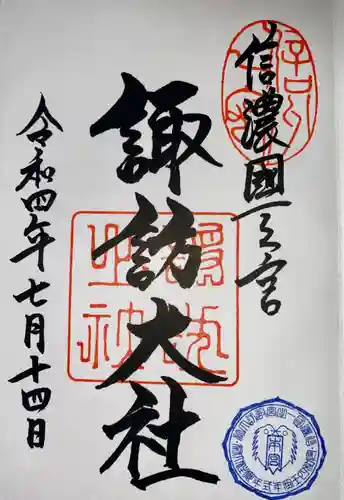 信濃國一之宮
諏訪大社
令和四年七月十四日
本宮